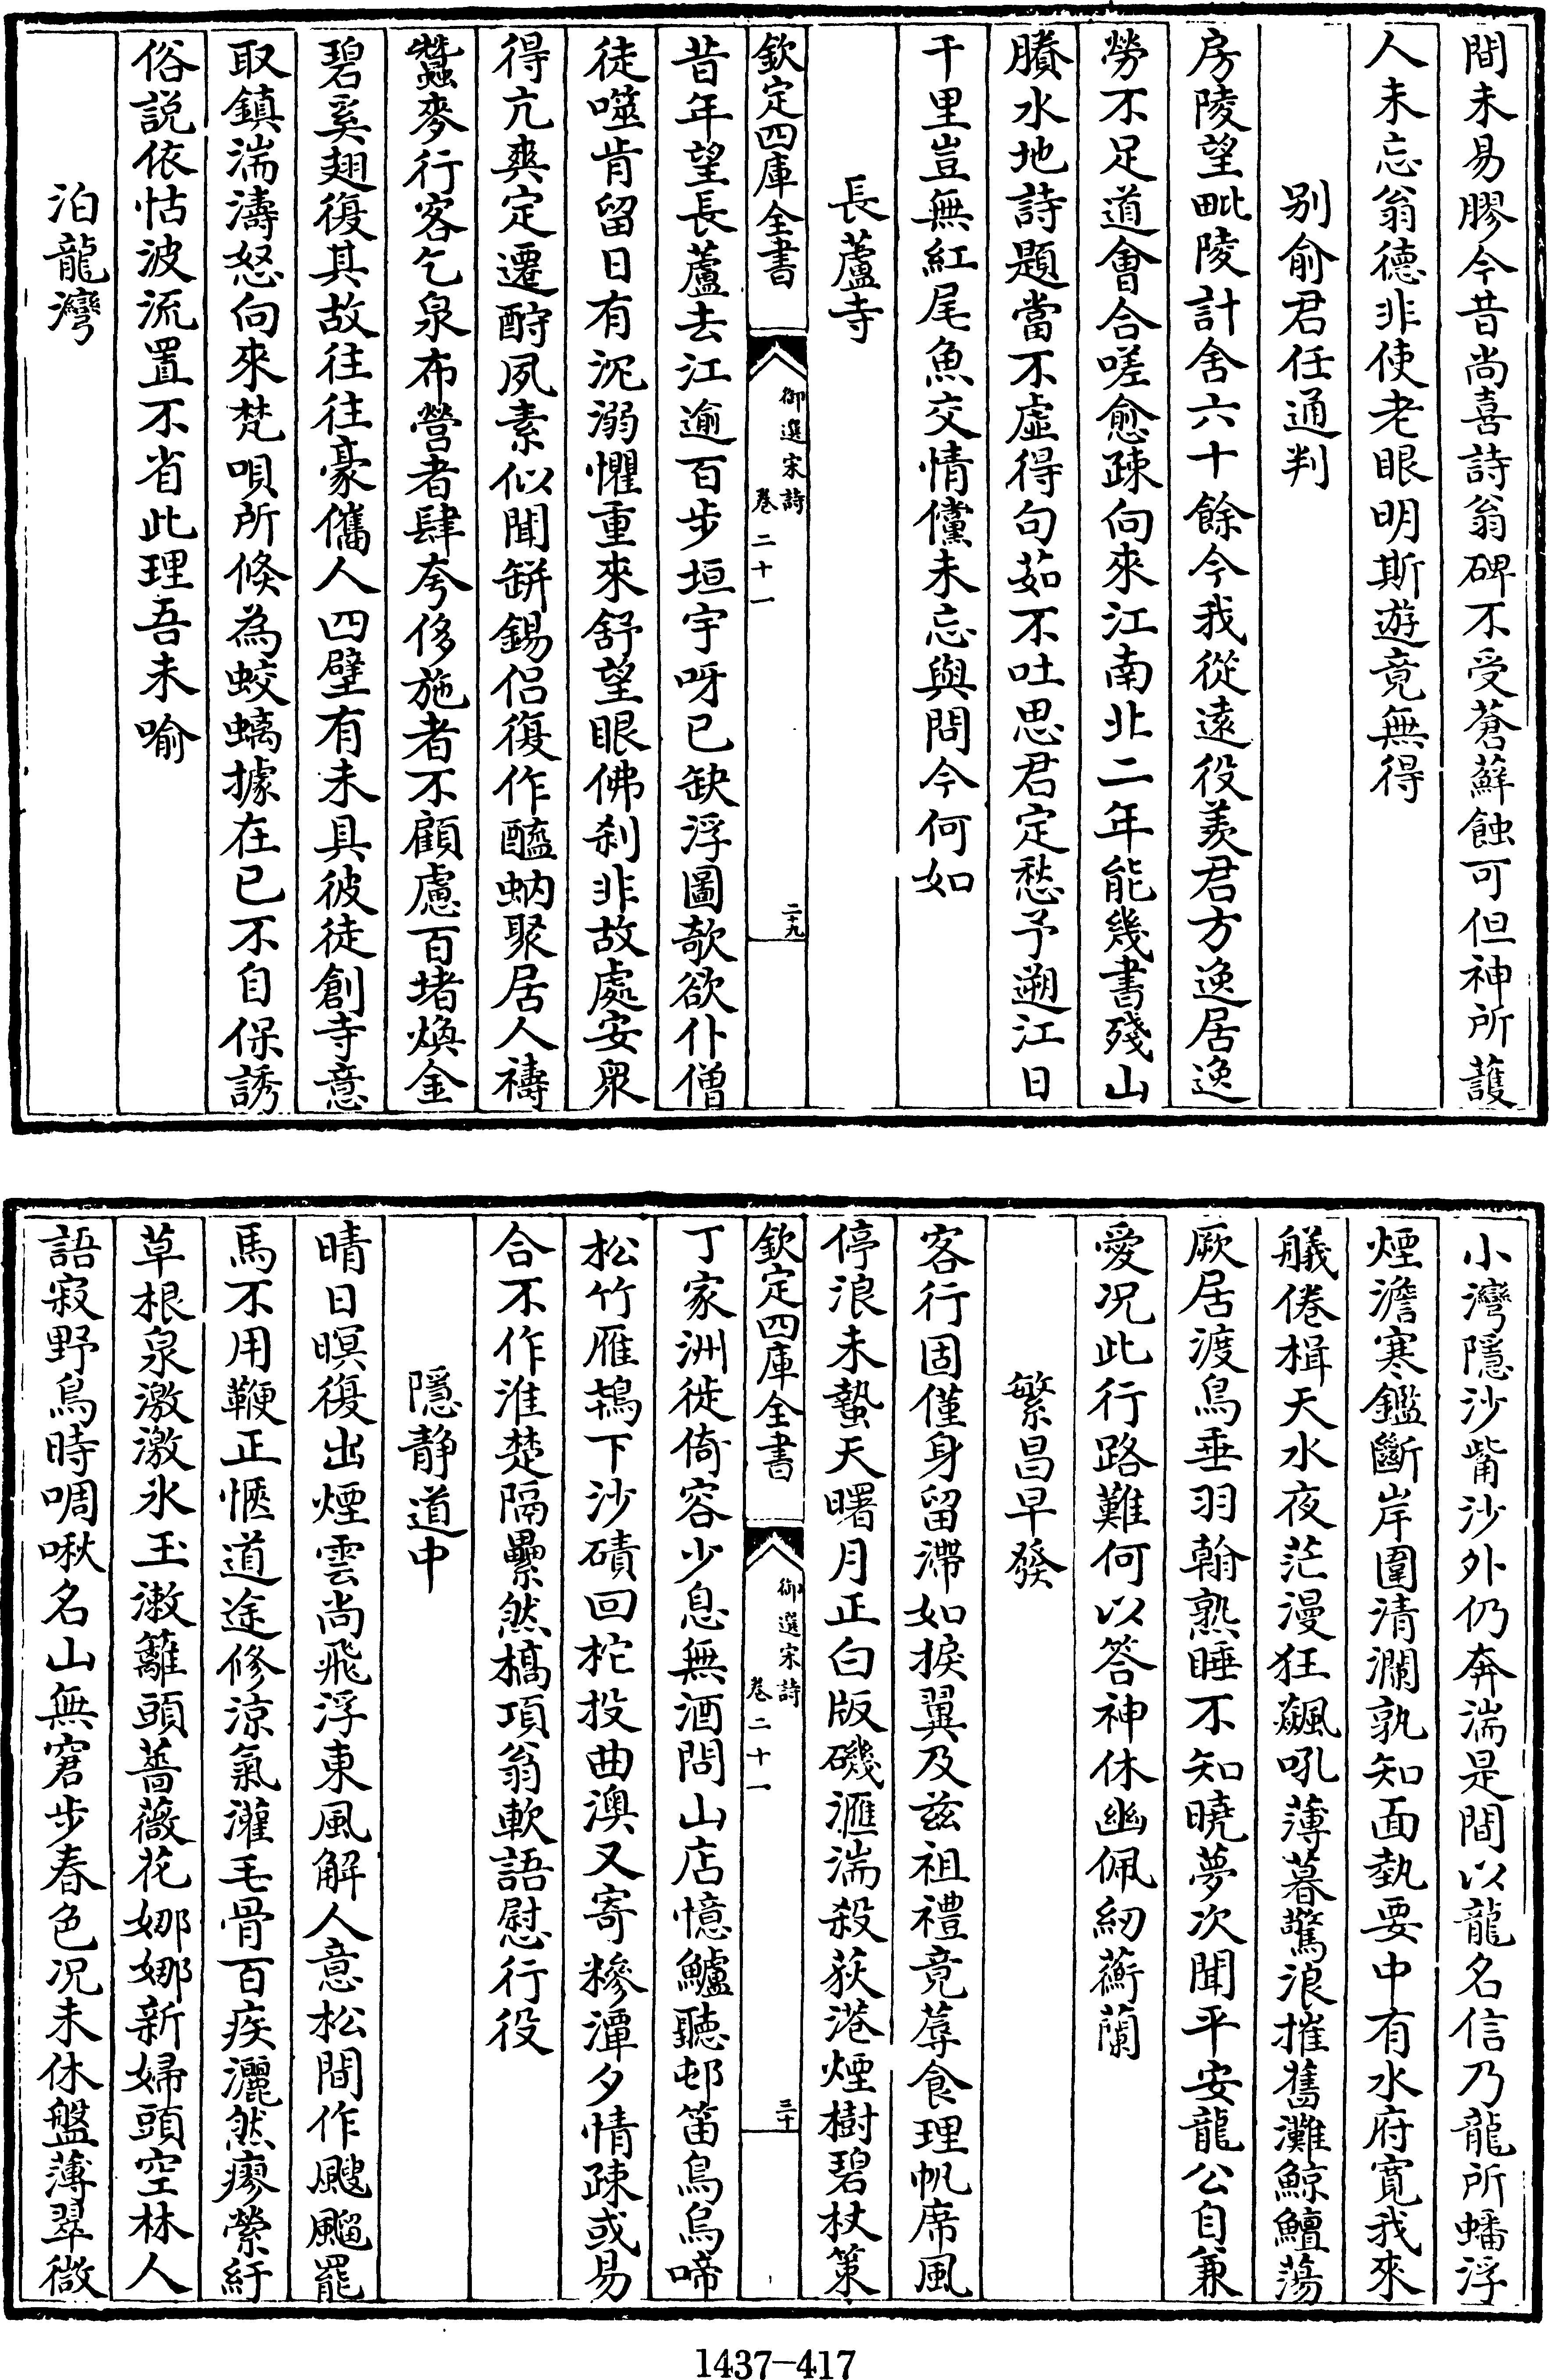 間未易膠今昔尚喜詩翁碑不受蒼蘚蝕可但神所護
人未忘翁德非使老眼明斯遊竟無得
别俞君任通判
房陵望毗陵計舍六十餘今我從逺役羨君方逸居逸
勞不足道會合嗟愈疎向來江南北二年能幾書殘山
賸水地詩題當不虚得句茹不吐思君定愁予遡江日
千里豈無紅尾魚交情儻未忘與問今何如
長蘆寺
欽定四庫全書
御選宋詩
卷二十一
二十九
昔年望長蘆去江逾百步垣宇呀已缺浮圖欹欲仆僧
徒噬肯留日有沉溺懼重來舒望眼佛刹非故處安衆
得亢爽定遷酧夙素似聞缾錫侣復作醯蚋聚居人禱
蠶麥行客乞泉布營者肆夸侈施者不顧慮百堵煥金
碧奚翅復其故往往豪儶人四壁有未具彼徒創寺意
取鎮湍濤怒向來梵唄所倐為蛟螭據在已不自保誘
俗説依怙波流置不省此理吾未喻
泊龍灣
小灣隱沙觜沙外仍奔湍是間以龍名信乃龍所蟠浮
煙澹寒鑑斷岸圍清瀾孰知面埶要中有水府寛我來
艤倦楫天水夜茫漫狂飊吼薄暮驚浪摧舊灘鯨鱣蕩
厥居渡鳥垂羽翰熟睡不知曉夢次聞平安龍公自兼
愛况此行路難何以答神休幽佩紉蘅蘭
繁昌早發
客行固僅身留滯如捩翼及兹祖禮竟蓐食理帆席風
停浪未蟄天曙月正白版磯滙湍殺荻港煙樹碧杖策
丁家洲徙倚容少息無酒問山店憶鱸聽邨笛烏烏啼
松竹雁鴇下沙磧回柁投曲澳又寄糝潭夕情疎或易
合不作淮楚隔纍然槁項翁軟語慰行役
隱静道中
晴日暝復出煙雲尚飛浮東風解人意松間作颼飀罷
馬不用鞭正愜道途修涼氣灌毛骨百疾灑然瘳縈紆
草根泉激激氷玉漱籬頭薔薇花娜娜新婦頭空林人
語寂野鳥時啁啾名山無窘步春色况未休盤薄翠微
欽定四庫全書
御選宋詩
卷二十一
三十
1437-417